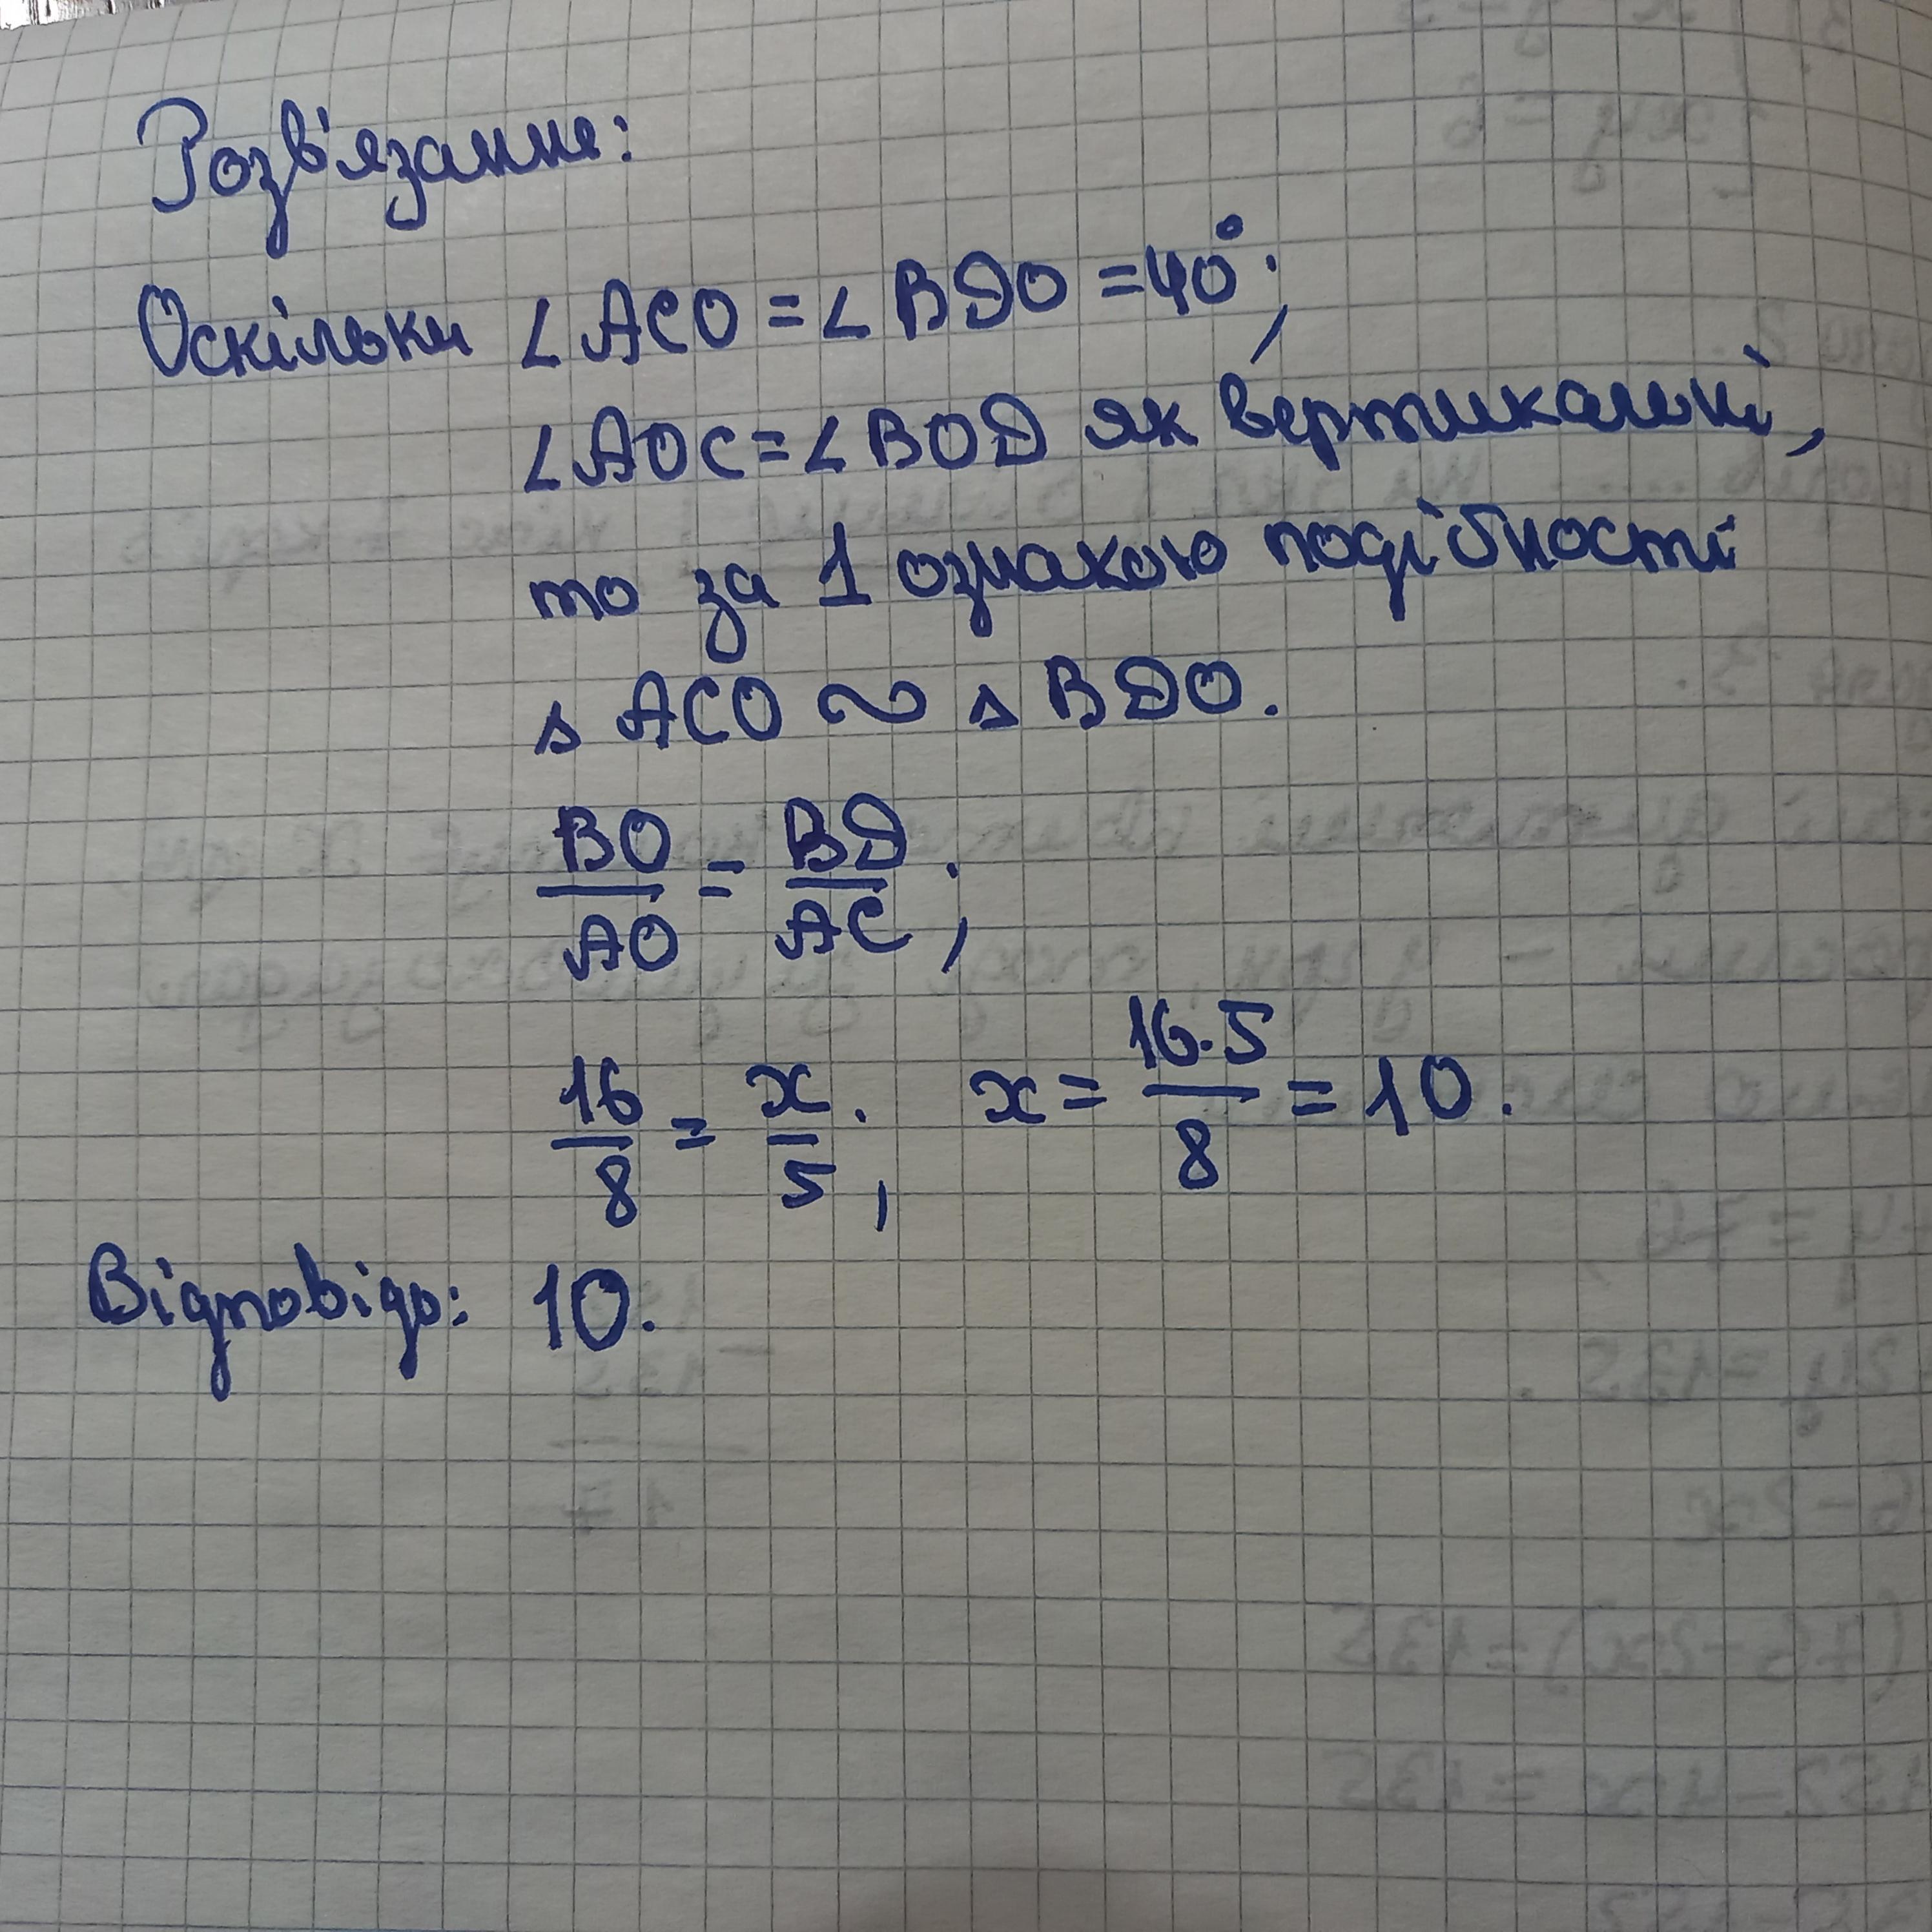 Розв'язання:
Оскільки ∠ACO = ∠BDO = 40°;
∠AOC = ∠BOD як вертикальні,
то за 1 ознакою подібності
△ ACO ∾ △ BDO.
BO/AO = BD/AC;
16/8 = x/5; x = 16·5/8 = 10.
Відповідь: 10.